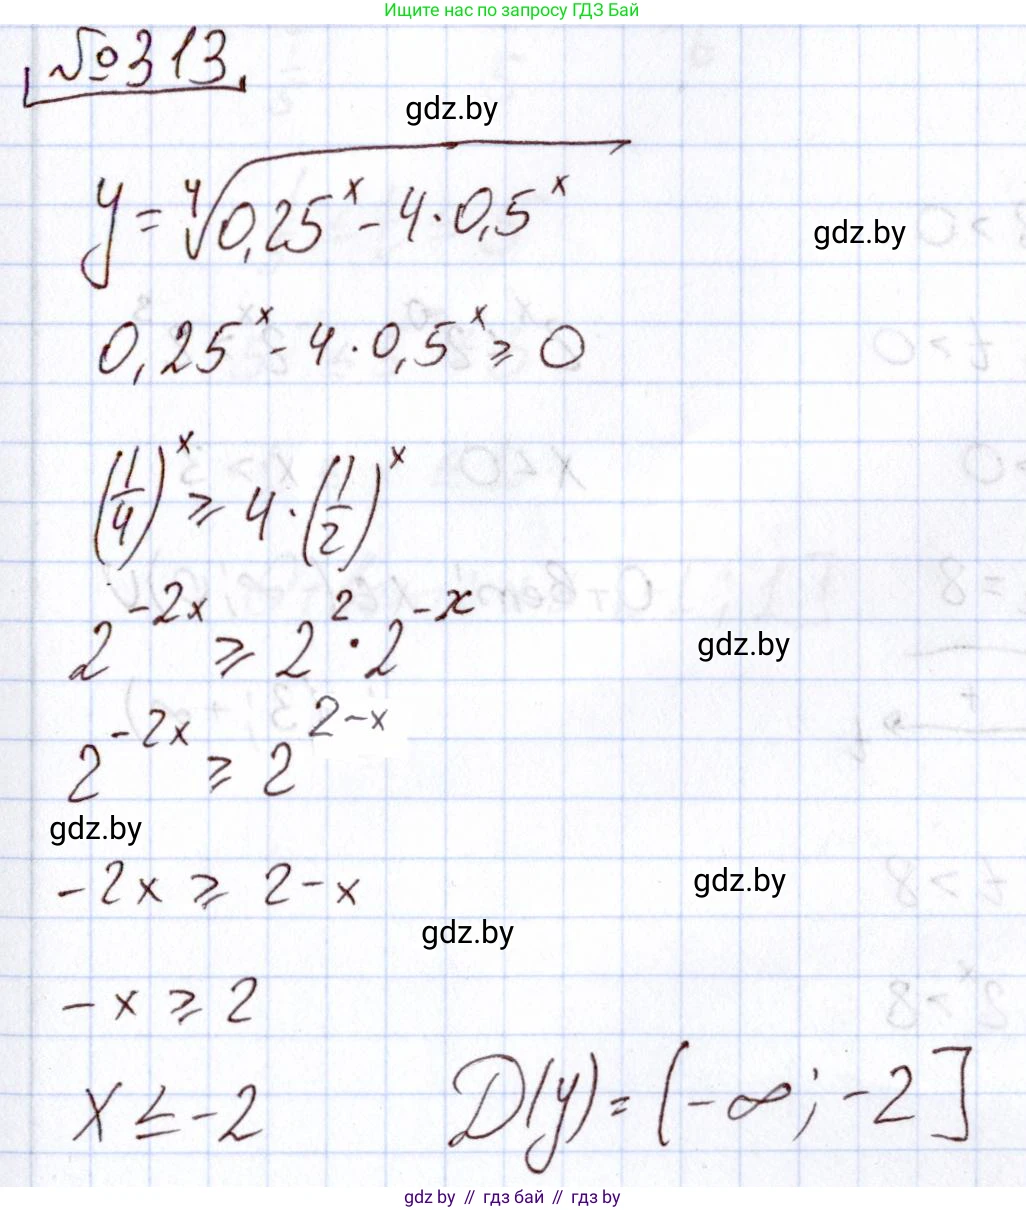 Ищите нас по запросу ГДЗ Бай
№313
gdz.by
y = ⁴√(0,25^x - 4·0,5^x)
gdz.by
0,25^x - 4·0,5^x ≥ 0
(1/4)^x ≥ 4·(1/2)^x
2^(-2x) ≥ 2^2·2^(-x)
gdz.by
2^(-2x) ≥ 2^(2-x)
gdz.by
-2x ≥ 2-x
gdz.by
gdz.by
-x ≥ 2
x ≤ -2 D(y) = (-∞; -2]
gdz by // гдз бай // гдз by